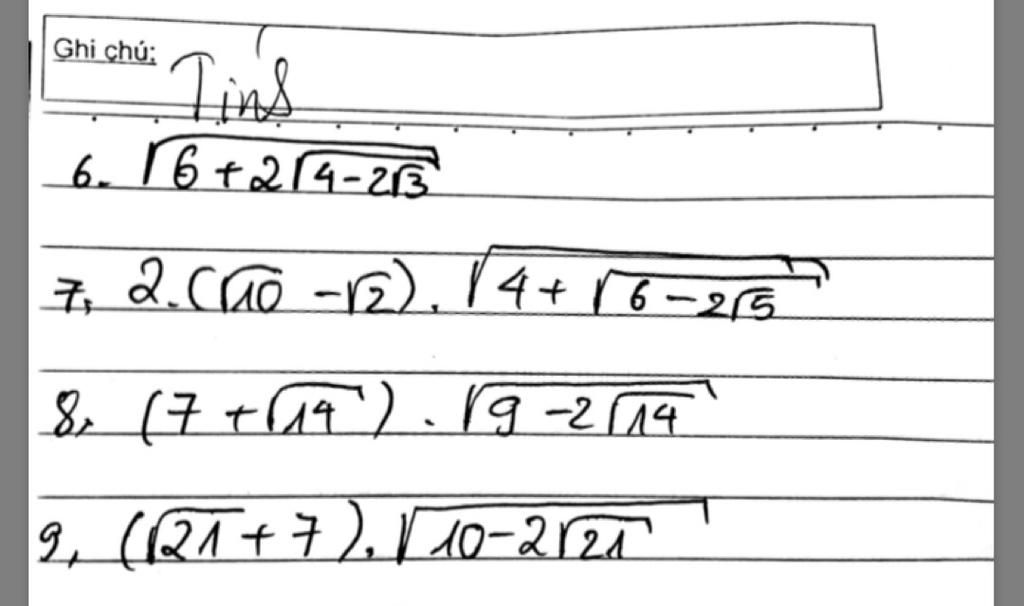 Ghi chú:
Tính
6. √(6 + 2√(4 - 2√3))
7, 2.(√10 - √2).√(4 + √(6 - 2√5))
8, (7 + √14).√(9 - 2√14)
9, (√21 + 7).√(10 - 2√21)